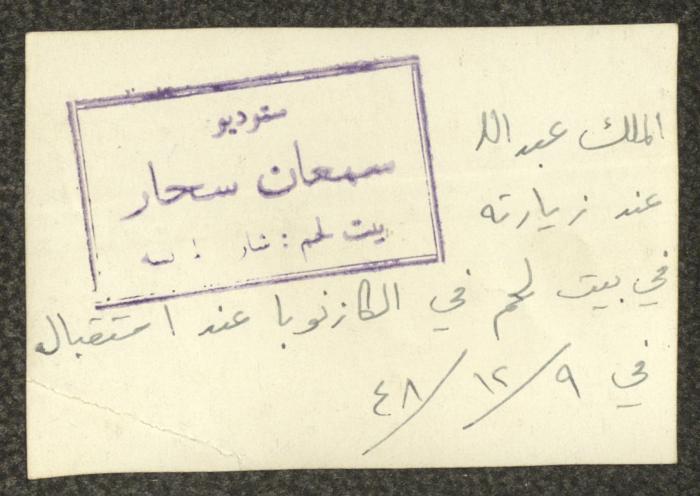 ستوديو
سمعان سحار
بيت لحم :
الملك عبد الله
عند زيارته
في بيت لحم في الكازنوبا عند استقباله
في ٩/١٢/٤٨